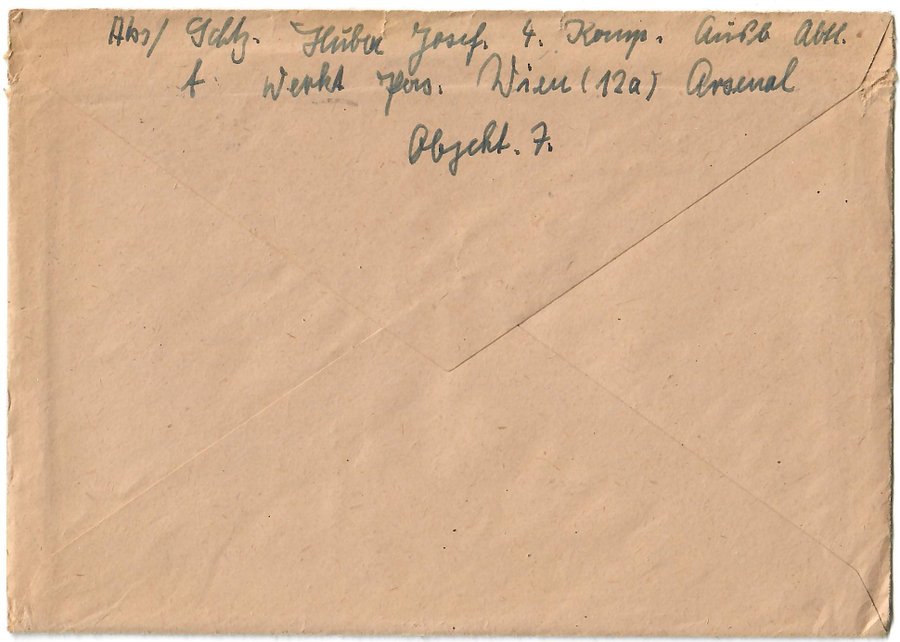 Abs/ Schtz. Huber Josef. 4. Komp. Ausb Abtl.
f. Werkt Pers. Wien (12a) Arsenal
Objekt. 7.